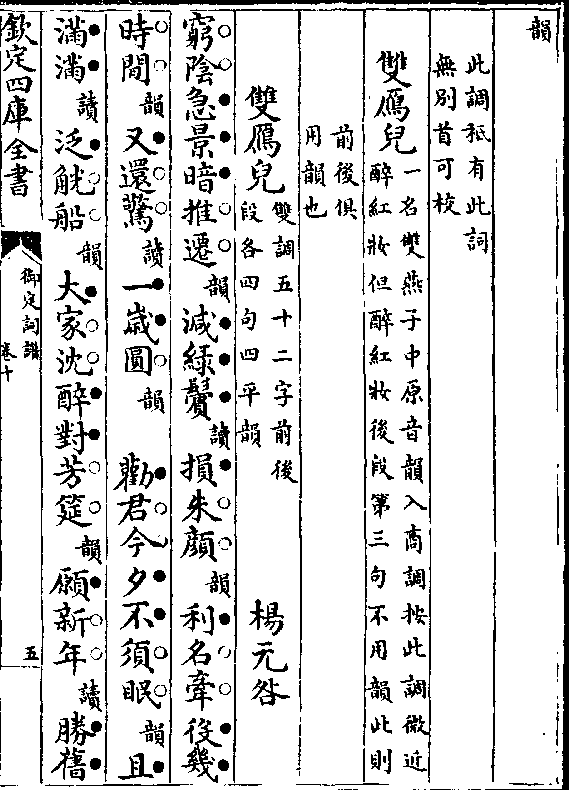 韻
此調秪有此詞
無別首可校
雙鴈兒 一名雙燕子中原音韻入商調按此調微近
醉紅妝但醉紅妝後段第三句不用韻此則
前後俱
用韻也
雙鴈兒 雙調五十二字前後
段各四句四平韻 楊元咎
窮陰急景暗推遷韻減綠鬢讀損朱顔韻利名牽役幾
時閒韻又還驚讀一歲圓韻 勸君今夕不須眠韻且
滿滿讀泛觥船韻大家沈醉對芳筵韻願新年讀勝舊
欽定四庫全書
御定詞譜
卷十
五